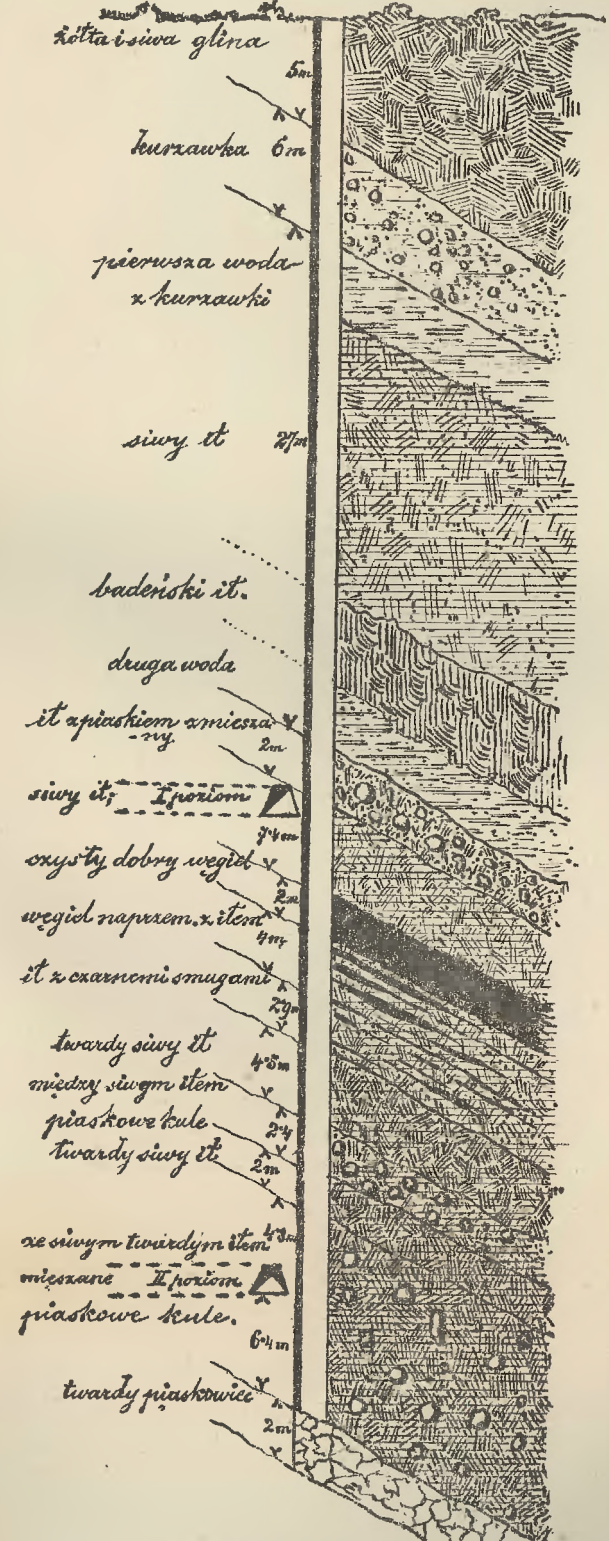 żółta i siwa glina
5m
kurzawka 6m
pierwsza woda
z kurzawki
siwy ił 27m
badeński ił.
druga woda
ił z piaskiem zmiesza
-ny
2m
siwy ił; I poziom
7·4m
czysty dobry węgiel
2m
węgiel naprzem. z iłem
4m
ił z czarnemi smugami
2·9m
twardy siwy ił
4·5m
między siwym iłem
piaskowe kule
2·4
twardy siwy ił
2m
ze siwym twardym iłem
mieszane II poziom
piaskowe kule.
6·4m
twardy piaskowiec
2m